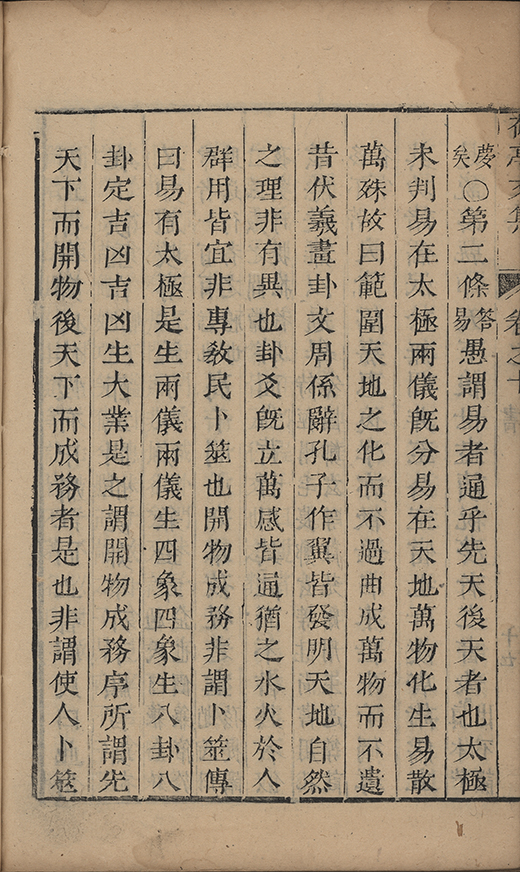 卷之十
慶矣○第二條答易愚謂易者通乎先天後天者也太極
未判易在太極兩儀旣分易在天地萬物化生易散
萬殊故曰範圍天地之化而不過曲成萬物而不遺
昔伏羲畫卦文周係辭孔子作翼皆發明天地自然
之理非有異也卦爻旣立萬感皆通猶之水火於人
群用皆宜非專敎民卜筮也開物成務非謂卜筮傳
曰易有太極是生兩儀兩儀生四象四象生八卦八
卦定吉凶吉凶生大業是之謂開物成務序所謂先
天下而開物後天下而成務者是也非謂使人卜筮